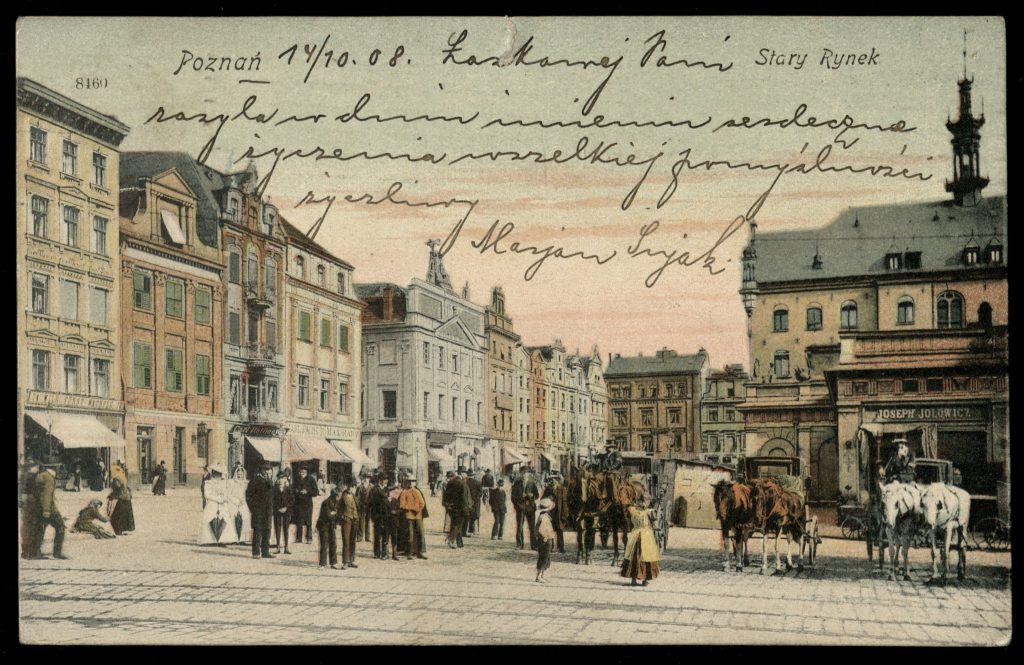 Poznań 14/10.08. Łaskawej Pani Stary Rynek
8160
zasyła w dniu imienin serdeczne
życzenia wszelkiej pomyślności
życzliwy
Marjan
JOSEPH JOLOWICZ